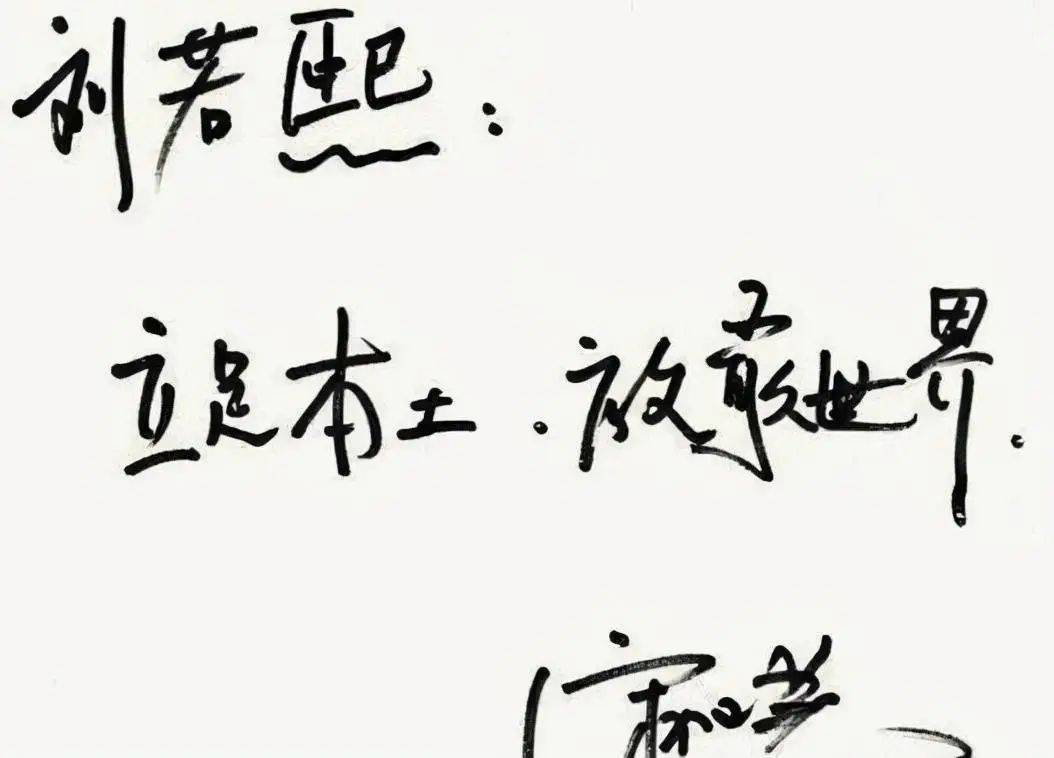 刘若熙：
立足本土．放敢世界．